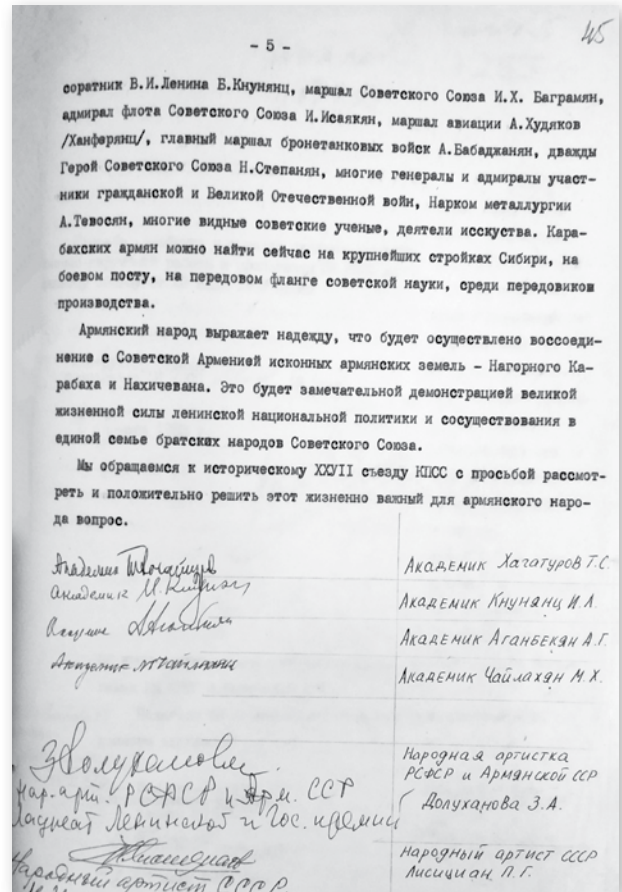 - 5 -
45
соратник В.И.Ленина Б.Кнунянц, маршал Советского Союза И.Х. Баграмян,
адмирал флота Советского Союза И.Исаякян, маршал авиации А.Худяков
/Ханферянц/, главный маршал бронетанковых войск А.Бабаджанян, дважды
Герой Советского Союза Н.Степанян, многие генералы и адмиралы участ-
ники гражданской и Великой Отечественной войн, Нарком металлургии
А.Тевосян, многие видные советские ученые, деятели исскуства. Кара-
бахских армян можно найти сейчас на крупнейших стройках Сибири, на
боевом посту, на передовом фланге советской науки, среди передовиков
производства.
Армянский народ выражает надежду, что будет осуществлено воссоеди-
нение с Советской Арменией исконных армянских земель - Нагорного Ка-
рабаха и Нахичевана. Это будет замечательной демонстрацией великой
жизненной силы ленинской национальной политики и сосуществования в
единой семье братских народов Советского Союза.
Мы обращаемся к историческому XXУII съезду КПСС с просьбой рассмот-
реть и положительно решить этот жизненно важный для армянского наро-
да вопрос.
Академик
Академик Хачатуров Т.С.
академик И. Кнунянц
Академик Кнунянц И.Л.
Академик
Академик Аганбекян А.Г.
Академик
Академик Чайлахян М.Х.
З Долуханова
Народная артистка
РСФСР и Армянской ССР
Нар. арт. РСФСР и Арм. ССР
Долуханова З.А.
Лауреат Ленинской и Гос. премии
Народный артист СССР
Лисициан П.Г.
Народный артист СССР